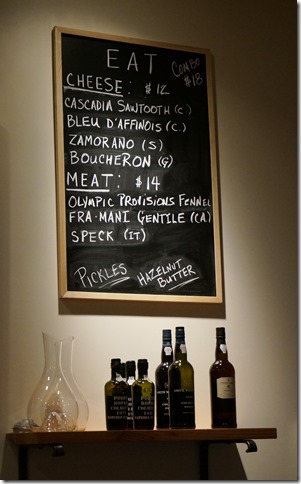 EAT
COMBO
$18
CHEESE: $12
CASCADIA SAWTOOTH (C)
BLEU D'AFFINOIS (C.)
ZAMORANO (S)
BOUCHERON (G)
MEAT: $14
OLYMPIC PROVISIONS FENNEL
FRA·MANI GENTILE (CA)
SPECK (IT)
PICKLES
HAZELNUT
BUTTER